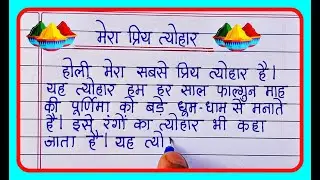 मेरा प्रिय त्योहार
होली मेरा सबसे प्रिय त्योहार है।
यह त्योहार हम हर साल फाल्गुन माह
की पूर्णिमा को बड़े धूम-धाम से मनाते
हैं। इसे रंगों का त्योहार भी कहा
जाता है। यह त्यो